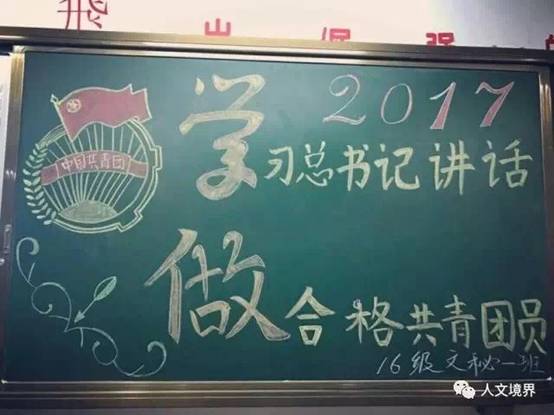 飛
2017
中国共青团
学习总书记讲话
做合格共青团员
16级文秘一班
人文境界